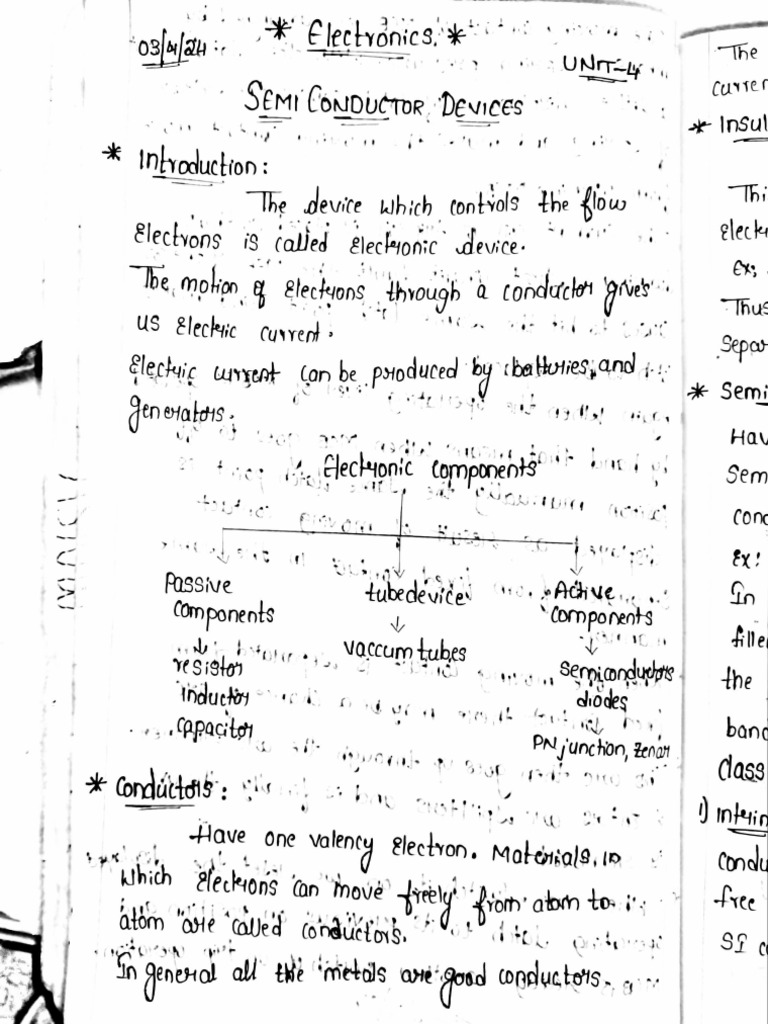 * Electronics. *
03/4/24 :
UNIT-4
SEMI CONDUCTOR DEVICES
* Introduction :
The device which controls the flow
Electrons is called Electronic device.
The motion of Electrons through a conductor gives
us Electric current.
Electric current can be produced by batteries, and
generators.
Electronic components
Passive components
tubedevice
Active components
resistor
inductor
capacitor
vaccum tubes
semiconductors
diodes
PN junction, Zenar
* Conductors :
Have one valency Electron. Materials, in
which Electrons can move freely from atom to
atom are called conductors.
In general all the metals are good conductors.
The
curren
* Insul
Thi
Elect
Ex;
Thus
Separ
* Semi
Hav
Sem
cond
Ex:
In
fille
the
band
class
1) Intrin
condu
free
SI c